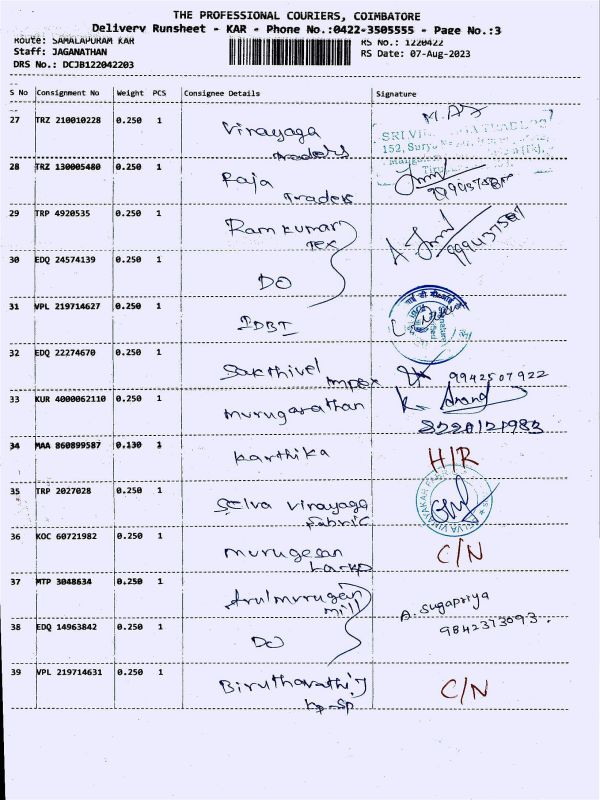 THE PROFESSIONAL COURIERS, COIMBATORE
Delivery Runsheet - KAR - Phone No.:0422-3505555 - Page No.:3
Route: SAMALAPURAM KAR RS No.: 1220422
Staff: JAGANATHAN RS Date: 07-Aug-2023
DRS No.: DCJB122042203
S No Consignment No Weight PCS Consignee Details Signature
27 TRZ 210010228 0.250 1 Vinayaga
Traders
28 TRZ 130005480 0.250 1 Raja
Traders
29 TRP 4920535 0.250 1 Ramkumar
Tex
30 EDQ 24574139 0.250 1
DO
31 VPL 219714627 0.250 1 IDBI
32 EDQ 22274670 0.250 1 Sakthivel
Impex 9942507922
33 KUR 4000062110 0.250 1 Murugarathan K. Anand
34 MAA 860899587 0.130 1 Karthika H/R
35 TRP 2027028 0.250 1 Selva Vinayaga
Fabric
36 KOC 60721982 0.250 1 Murugesan C/N
37 MTP 3048634 0.250 1 Arulmurugan
mill A. Sugapriya
38 EDQ 14963842 0.250 1 DO 9842373093.
39 VPL 219714631 0.250 1 C/N